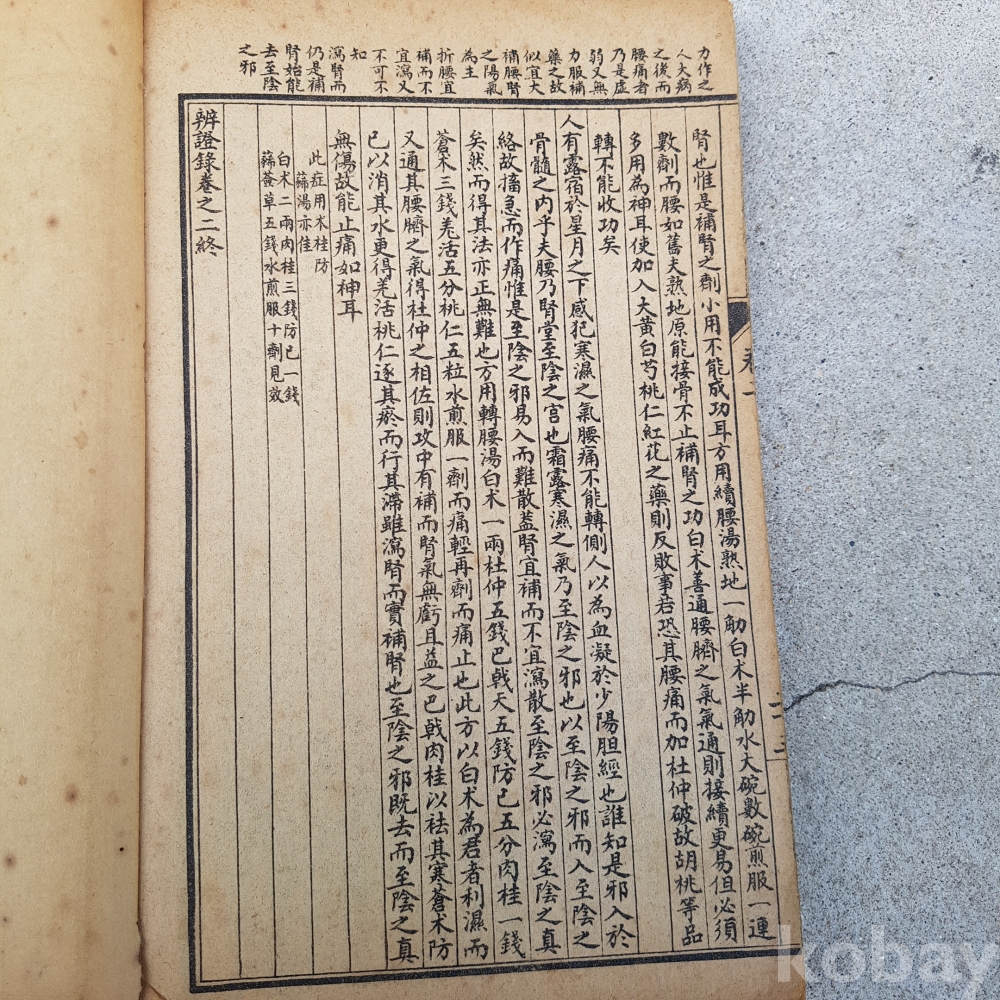 力作之
人大病
之後而
腰痛者
乃是虛
弱又無
力服補
藥之故
似宜大
補腰腎
之陽氣
為主
折腰宜
補而不
宜瀉又
不可不
知
瀉腎而
仍是補
腎始能
去至陰
之邪
腎也惟是補腎之劑小用不能成功耳方用續腰湯熟地一觔白术半觔水大碗數碗煎服一連
數劑而腰如舊夫熟地原能接骨不止補腎之功白术善通腰臍之氣氣通則接續更易但必須
多用為神耳使加入大黃白芍桃仁紅花之藥則反敗事若恐其腰痛而加杜仲破故胡桃等品
轉不能收功矣
人有露宿於星月之下感犯寒濕之氣腰痛不能轉側人以為血凝於少陽胆經也誰知是邪入於
骨髓之內乎夫腰乃腎堂至陰之宮也霜露寒濕之氣乃至陰之邪也以至陰之邪而入至陰之
絡故搐急而作痛惟是至陰之邪易入而難散蓋腎宜補而不宜瀉散至陰之邪必瀉至陰之真
矣然而得其法亦正無難也方用轉腰湯白术一兩杜仲五錢巴戟天五錢防己五分肉桂一錢
蒼术三錢羌活五分桃仁五粒水煎服一劑而痛輕再劑而痛止也此方以白术為君者利濕而
又通其腰臍之氣得杜仲之相佐則攻中有補而腎氣無虧且益之巴戟肉桂以祛其寒蒼术防
己以消其水更得羌活桃仁逐其瘀而行其滯雖瀉腎而實補腎也至陰之邪既去而至陰之真
無傷故能止痛如神耳
此症用术桂防
蕕湯亦佳
白术二兩肉桂三錢防己一錢
蕕薟草五錢水煎服十劑見效
辨證錄卷之二終
卷二
kobay